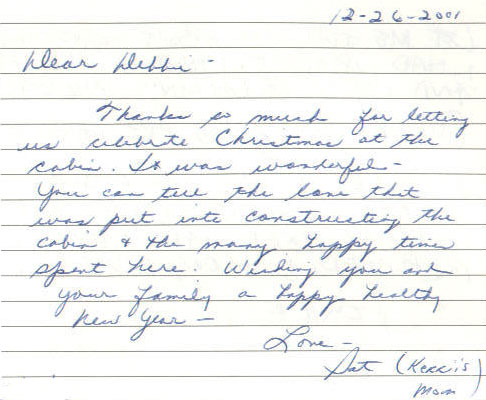 12-26-2001
Dear Debbie -
Thanks so much for letting
us celebrate Christmas at the
cabin. It was wonderful -
You can tell the love that
was put into constructing the
cabin & the many happy times
spent here. Wishing you and
your family a happy healthy
New Year -
Love -
Pat (Kerri's
Mom)